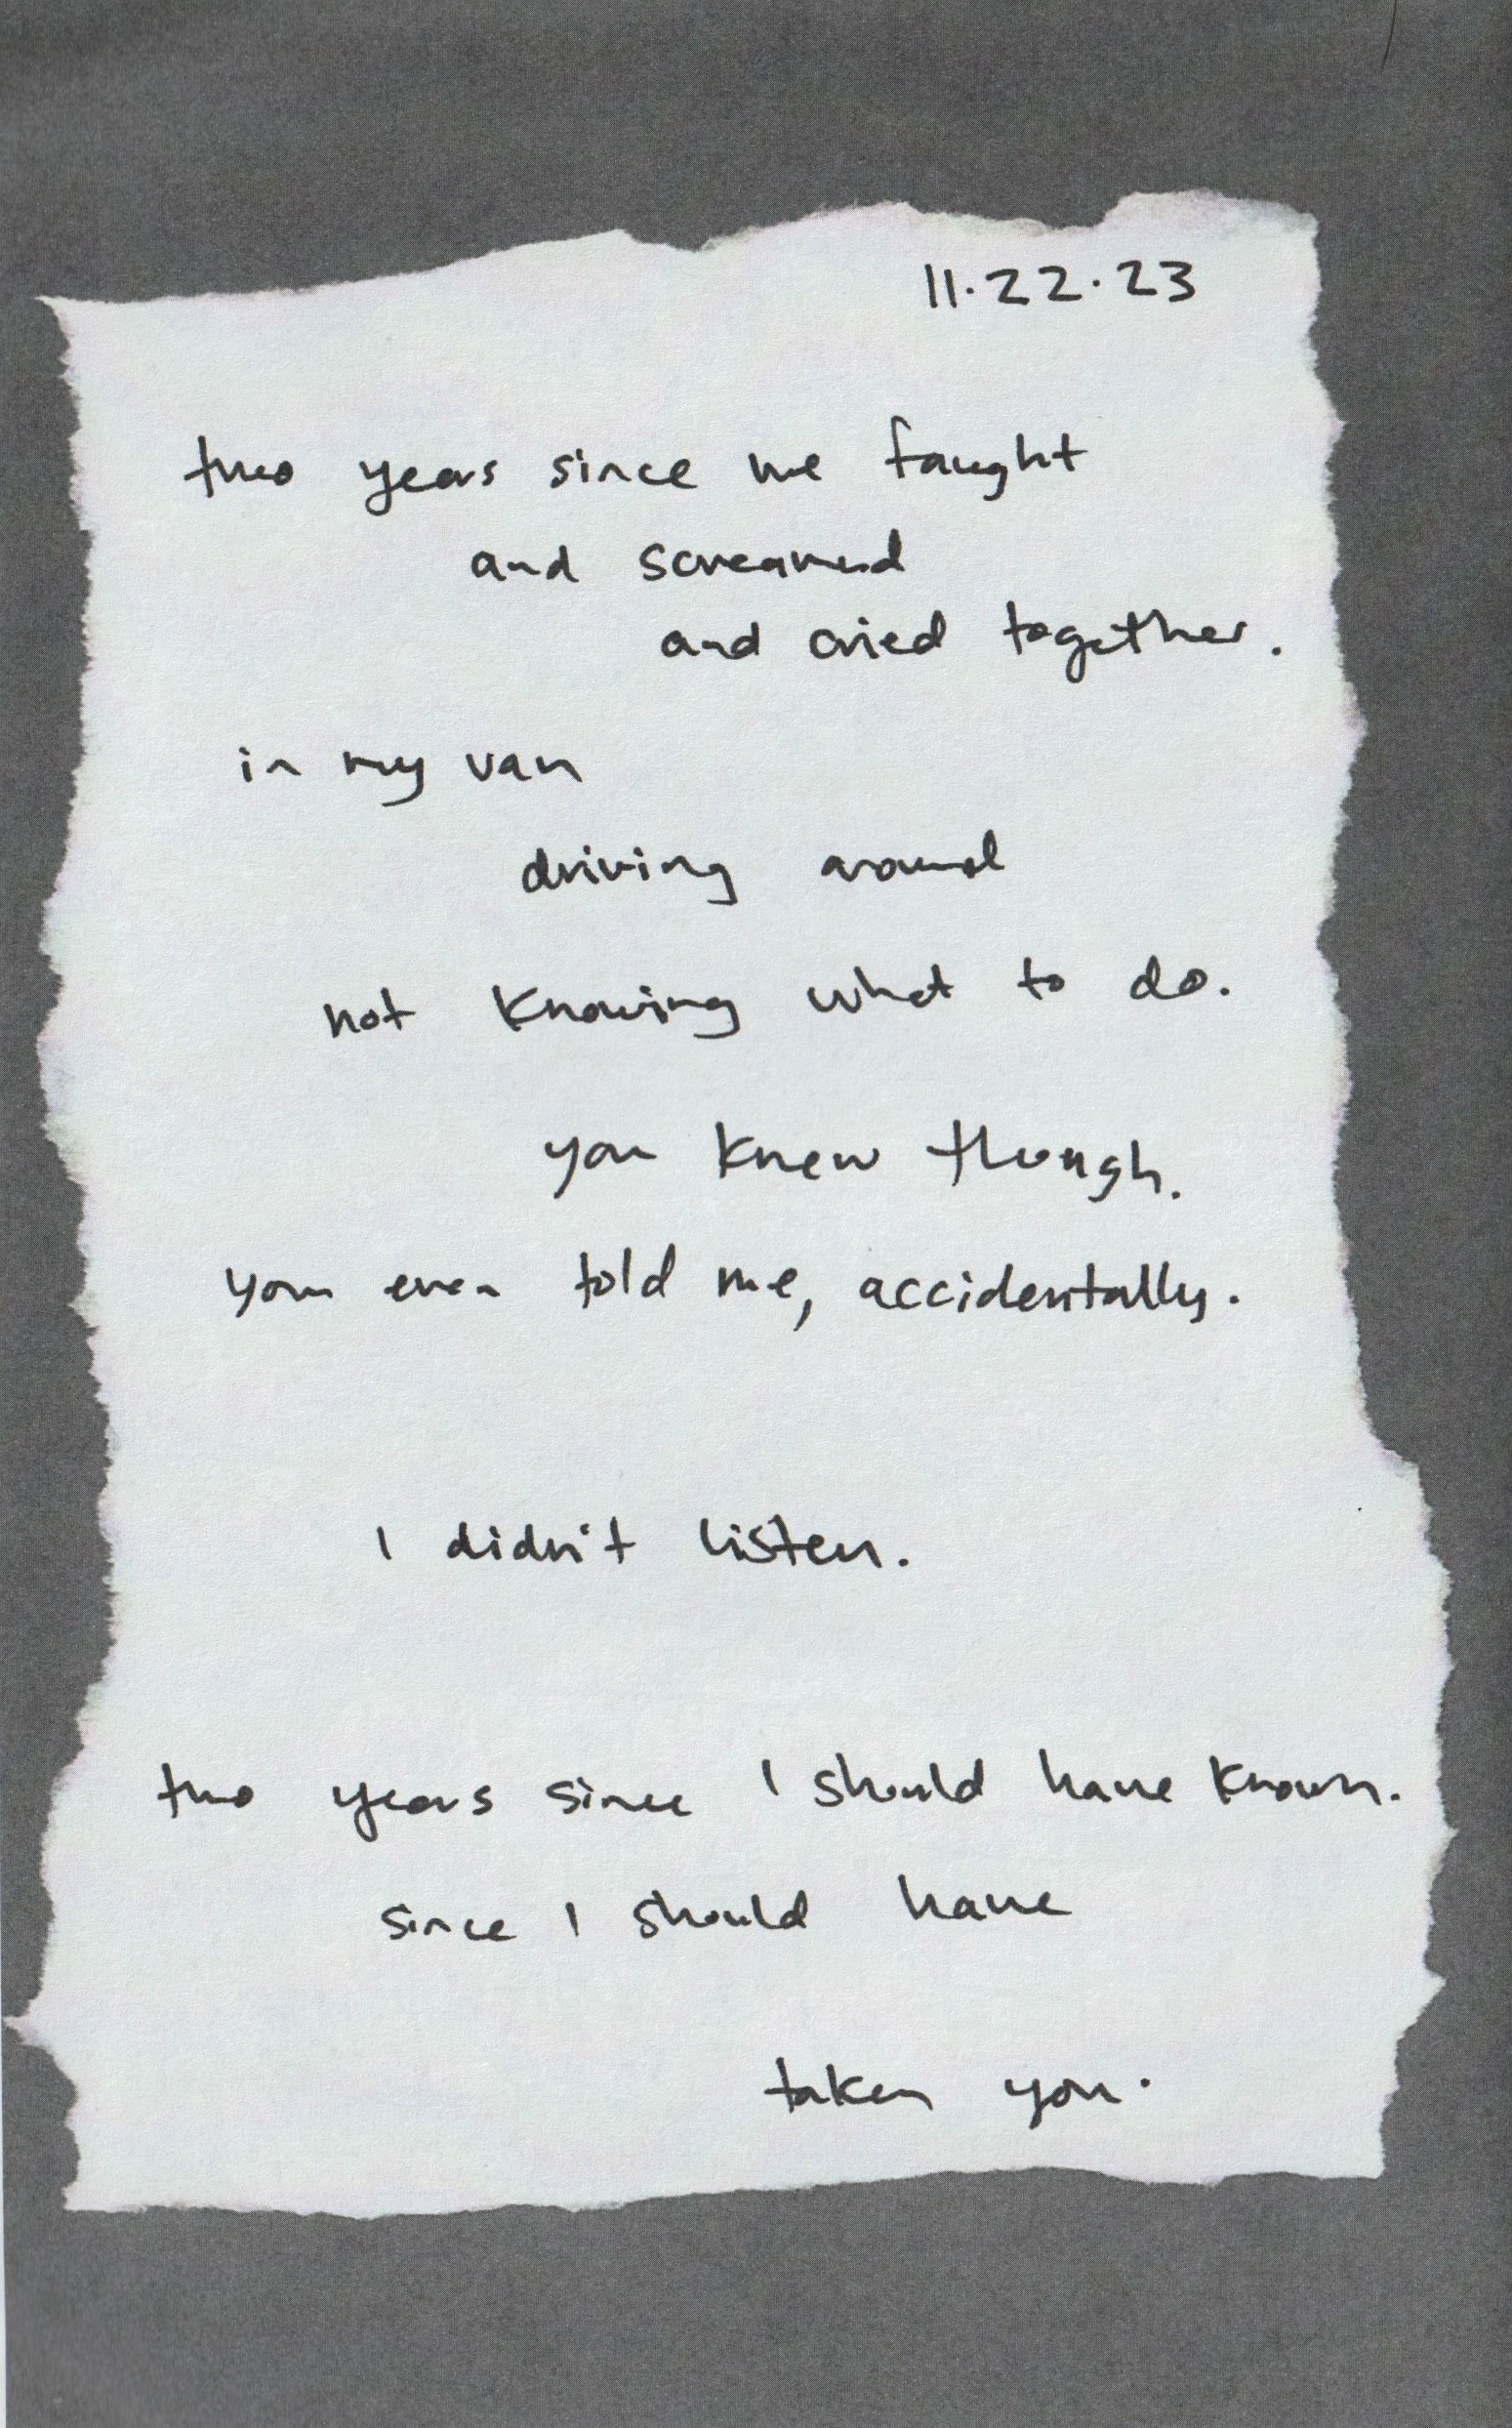 11.22.23
two years since we faught
and screamed
and cried together.
in my van
driving around
not knowing what to do.
you knew though.
you even told me, accidentally.
I didn't listen.
two years since I should have known.
since I should have
taken you.